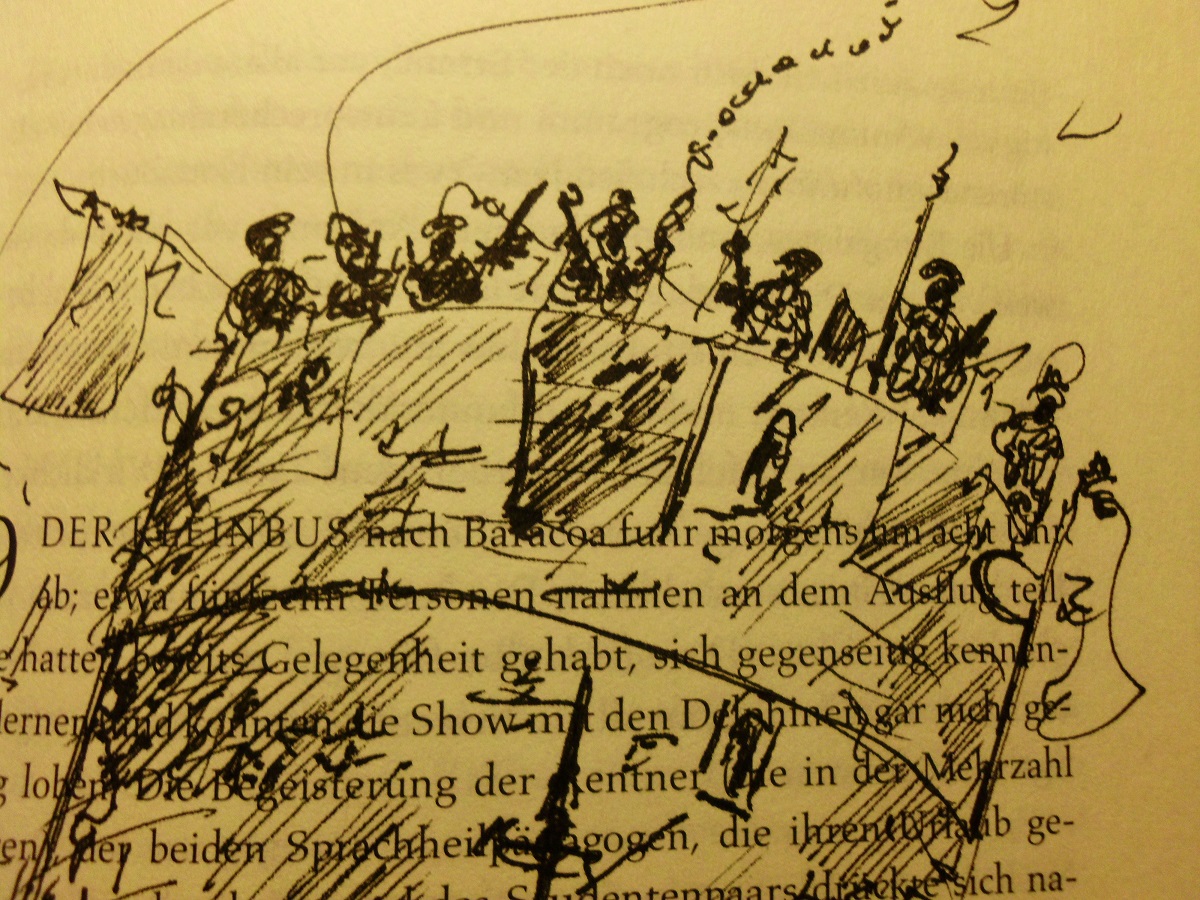 DER KLEINBUS nach Baracoa fuhr morgens um acht Uhr
ab; etwa fünfzehn Personen nahmen an dem Ausflug teil,
hatten bereits Gelegenheit gehabt, sich gegenseitig kennen-
lernen und konnten die Show mit den Delphinen gar nicht ge-
loben. Die Begeisterung der Rentner, die in der Mehrzahl
der beiden Sprachheilpädagogen, die ihren Urlaub ge-
des Studentenpaars drückte sich na-